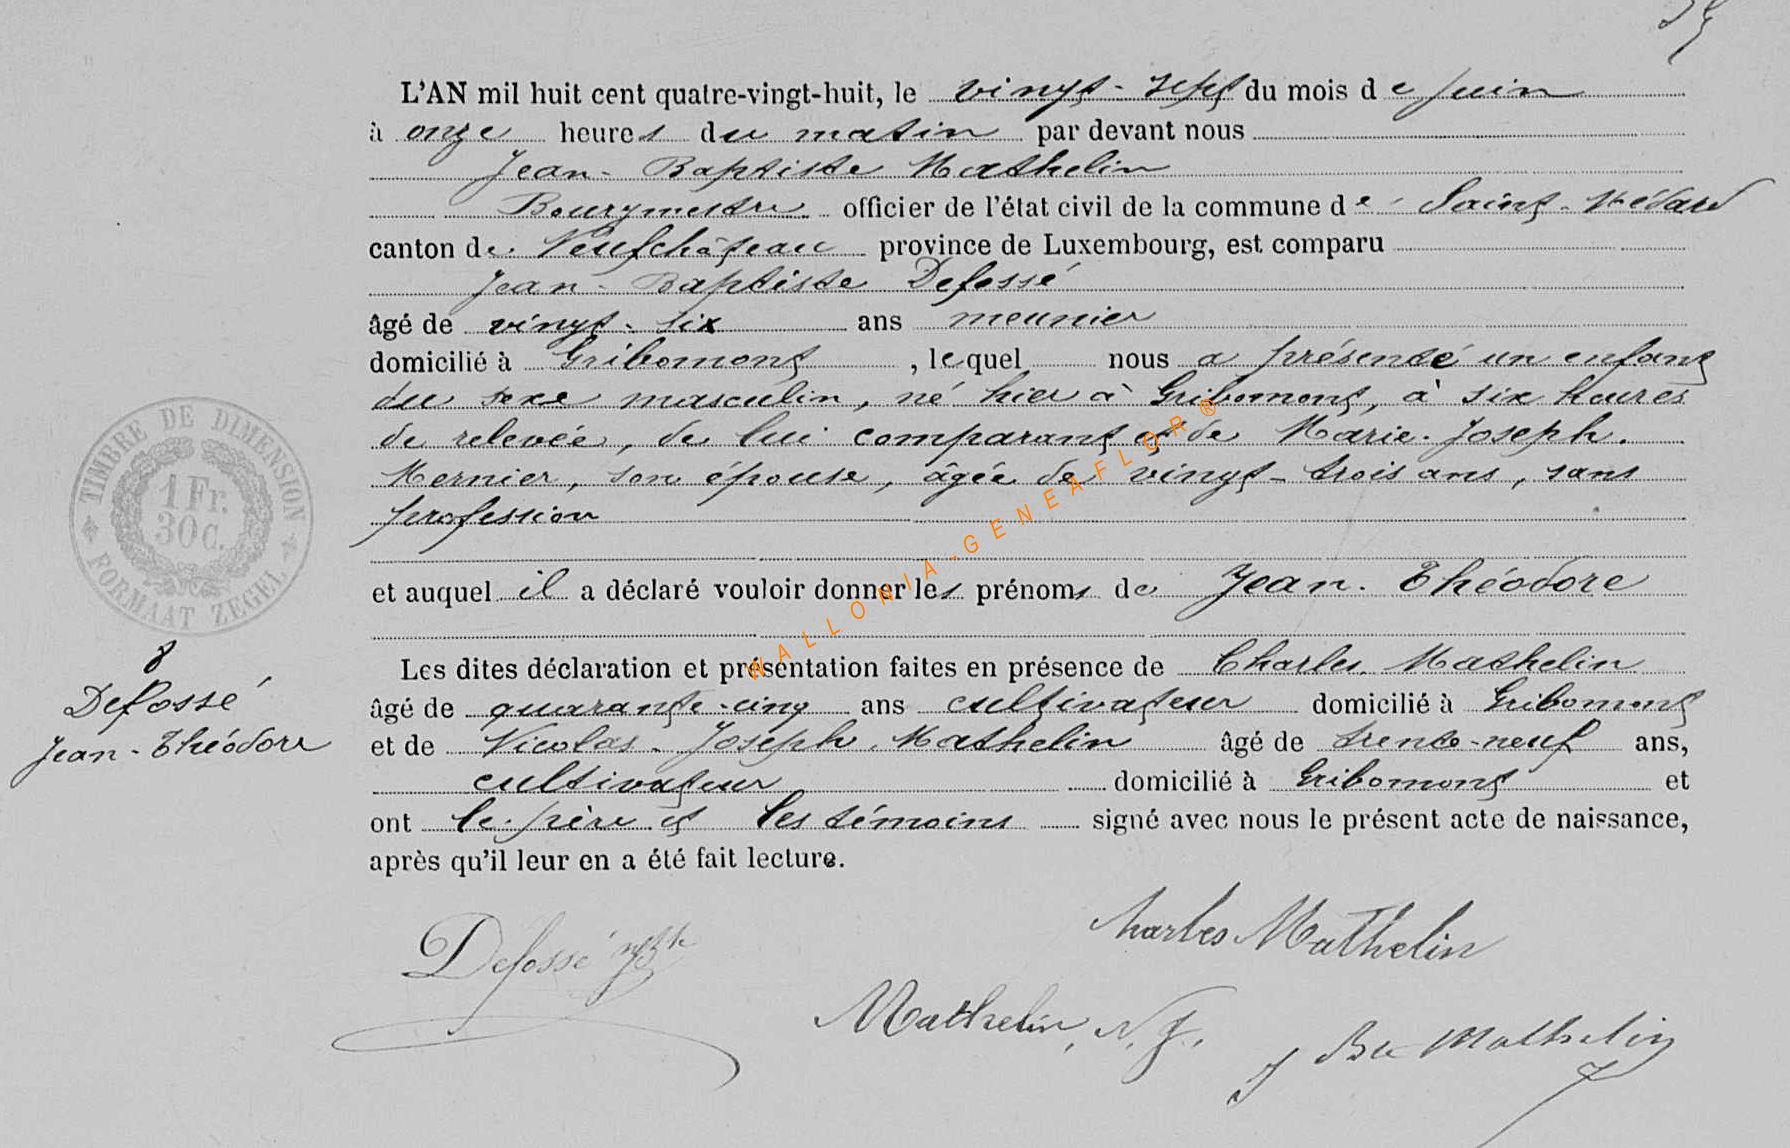 L'AN mil huit cent quatre-vingt-huit, le vingt-sept du mois de juin
à onze heures du matin par devant nous
Jean-Baptiste Mathelin
Bourgmestre officier de l'état civil de la commune de Saint-Médard
canton de Neufchâteau province de Luxembourg, est comparu
Jean-Baptiste Defossé
âgé de vingt-six ans meunier
domicilié à Gribomont, lequel nous a présenté un enfant
du sexe masculin, né hier à Gribomont, à six heures
de relevée, de lui comparant et de Marie-Joseph
Mernier, son épouse, âgée de vingt-trois ans, sans
profession
et auquel il a déclaré vouloir donner les prénoms de Jean-Théodore
Les dites déclaration et présentation faites en présence de Charles Mathelin
âgé de quarante-cinq ans cultivateur domicilié à Gribomont
et de Nicolas-Joseph Mathelin âgé de trente-neuf ans,
cultivateur domicilié à Gribomont et
ont le père et les témoins signé avec nous le présent acte de naissance,
après qu'il leur en a été fait lecture.
TIMBRE DE DIMENSION
1 Fr.
30 c.
FORMAAT ZEGEL
8
Defossé
Jean-Théodore
WALLONIA-GENEAFLOR®
Charles Mathelin
Defossé
Mathelin, N. J.
J Bte Mathelin